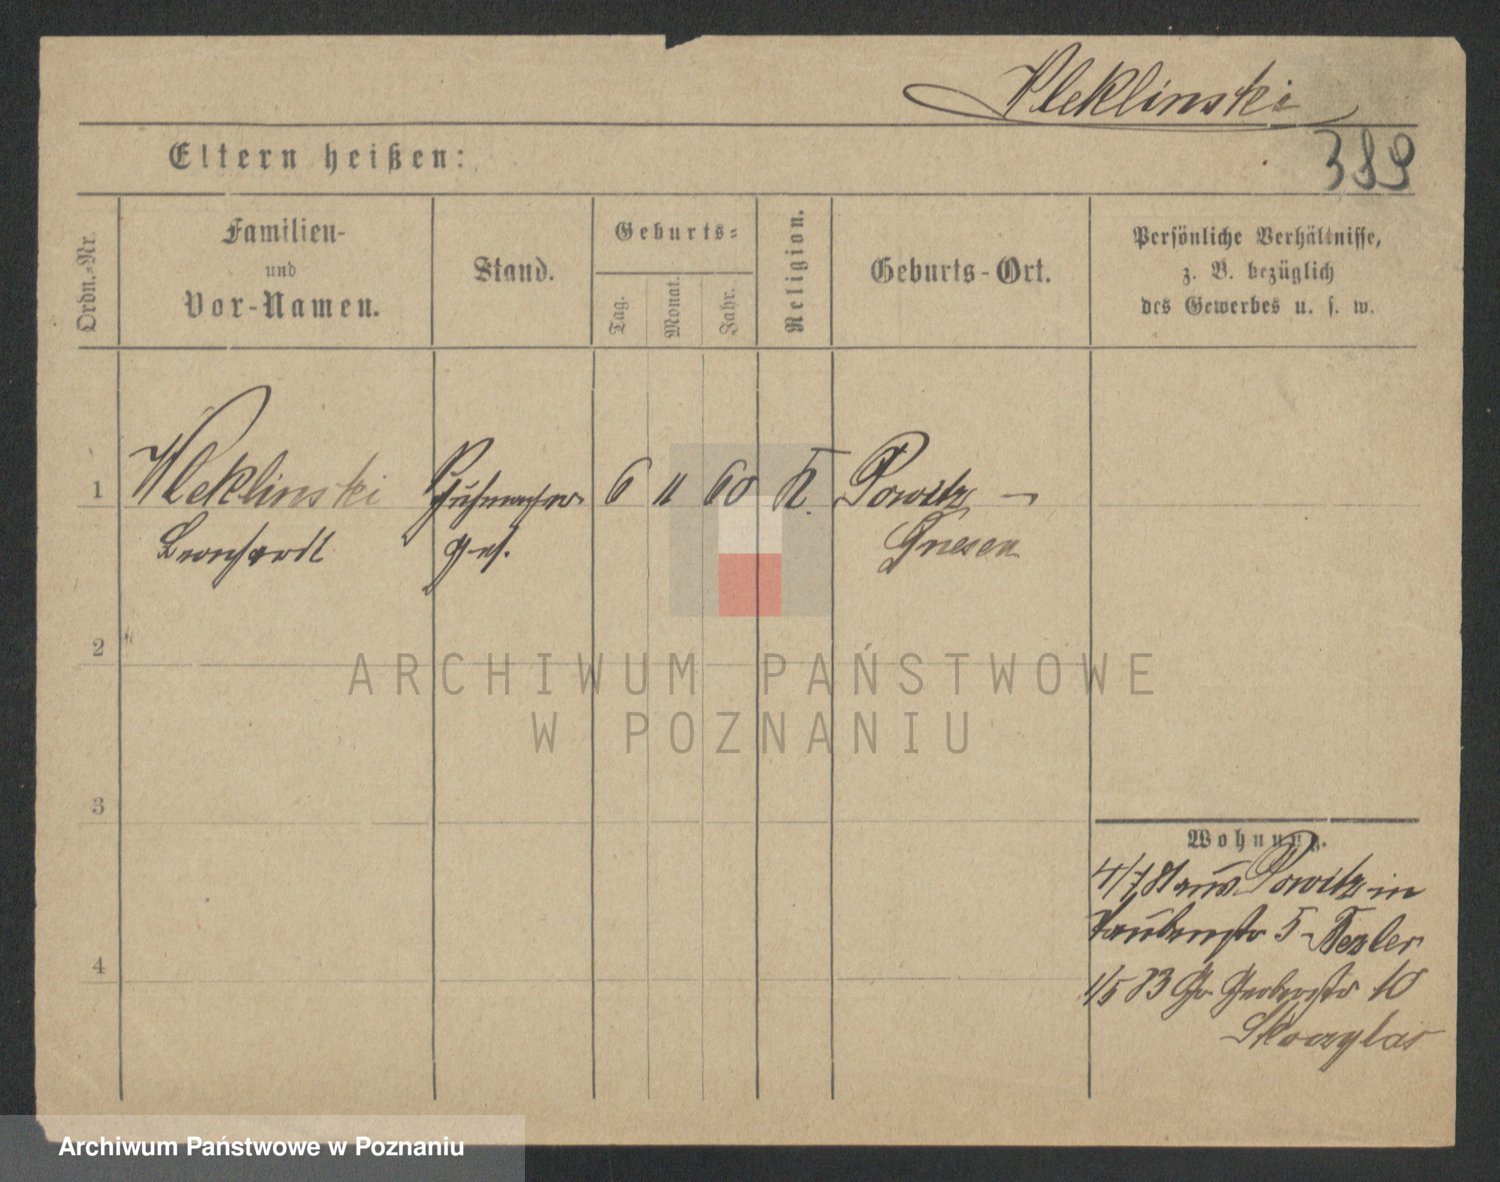 Wleklinski
389
Eltern heißen:
Ordn.-Nr.
Familien-
und
Vor-Namen.
Stand.
Geburts-
Tag.
Monat.
Jahr.
Religion.
Geburts-Ort.
Persönliche Verhältnisse,
z. B. bezüglich
des Gewerbes u. s. w.
1
Wleklinski
Schuhmacher
6
11
60
K.
Powitz -
Leonhardt
Ges.
Gnesen
2
ARCHIWUM PAŃSTWOWE
W POZNANIU
3
Wohnung.
4/7 81 aus Powitz in
5
4
1/5 83 Gr Gerberstr 10
Archiwum Państwowe w Poznaniu